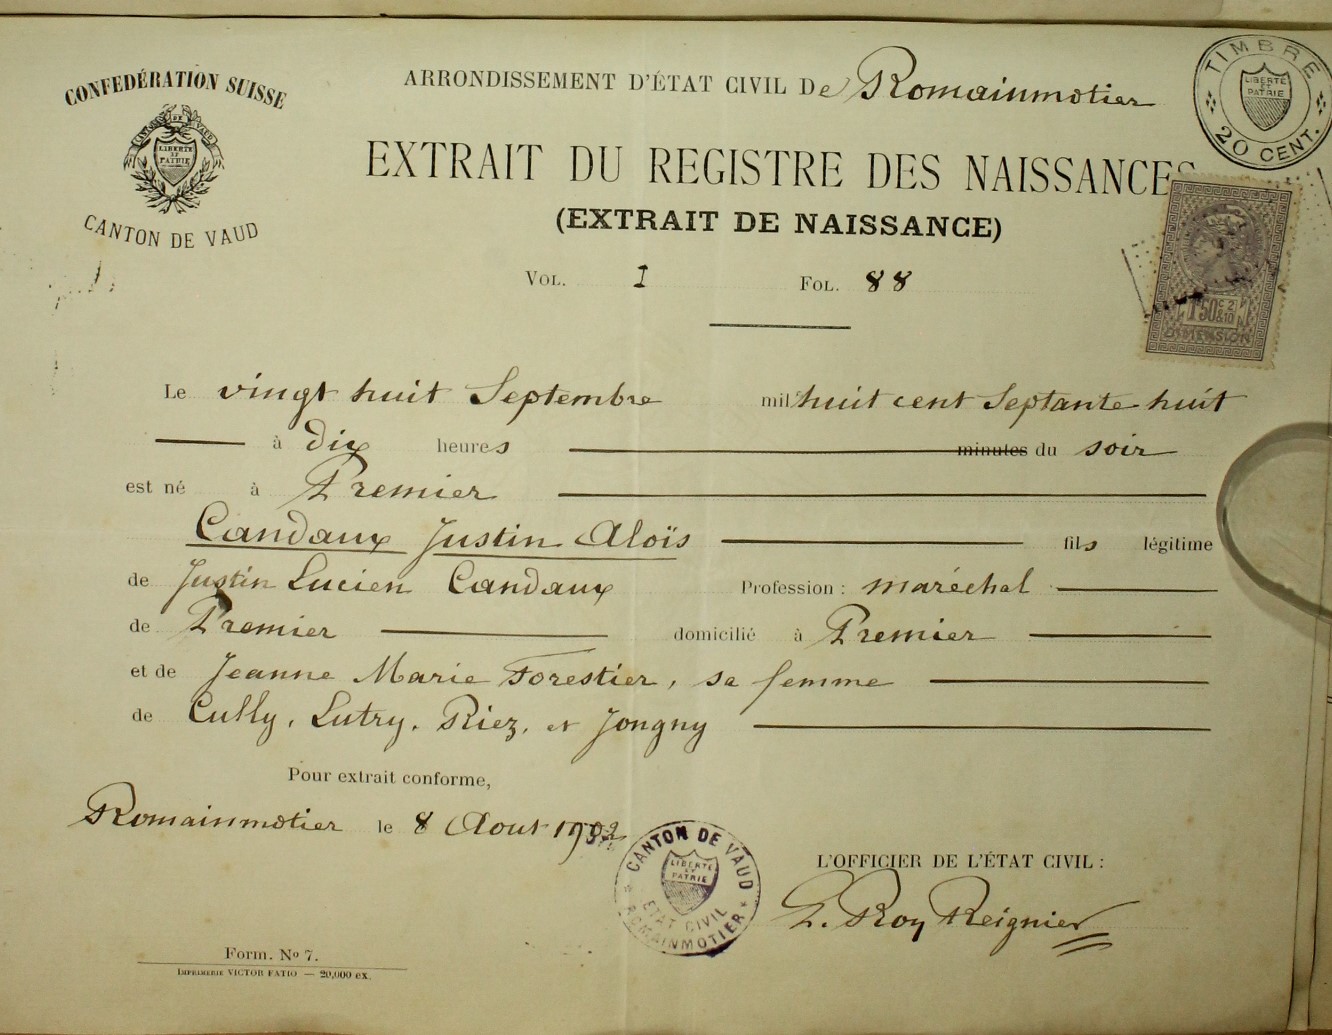 CONFEDÉRATION SUISSE
CANTON DE VAUD
LIBERTÉ ET PATRIE
CANTON DE VAUD
ARRONDISSEMENT D'ÉTAT CIVIL De Romainmotier
TIMBRE
LIBERTÉ ET PATRIE
20 CENT.
EXTRAIT DU REGISTRE DES NAISSANCES
(EXTRAIT DE NAISSANCE)
VOL. I FOL. 88
1F50c 2/10
DIMENSION
Le vingt huit Septembre mil huit cent Septante huit
à dix heures minutes du soir
est né à Premier
Candaux Justin Aloïs fils légitime
de Justin Lucien Candaux Profession : maréchal
de Premier domicilié à Premier
et de Jeanne Marie Forestier, sa femme
de Cully, Lutry, Riez, et Jongny
Pour extrait conforme,
Romainmotier le 8 Aout 1902
CANTON DE VAUD
LIBERTÉ ET PATRIE
ETAT CIVIL
ROMAINMOTIER
L'OFFICIER DE L'ÉTAT CIVIL :
L. Roy Reignier
Form. No 7.
IMPRIMERIE VICTOR FATIO — 20,000 ex.